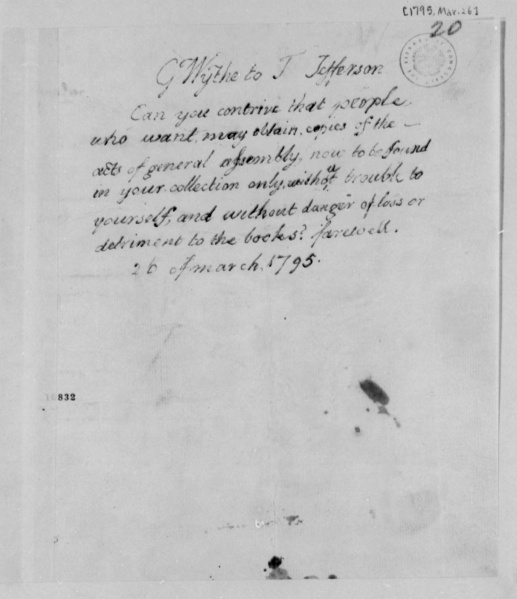 [1795, Mar. 26]
20
G Wythe to T Jefferson
Can you contrive that people
who want, may obtain copies of the
acts of general assembly, now to be found
in your collection only, without trouble to
yourself, and without danger of loss or
detriment to the books? farewell.
26 of march, 1795.
832